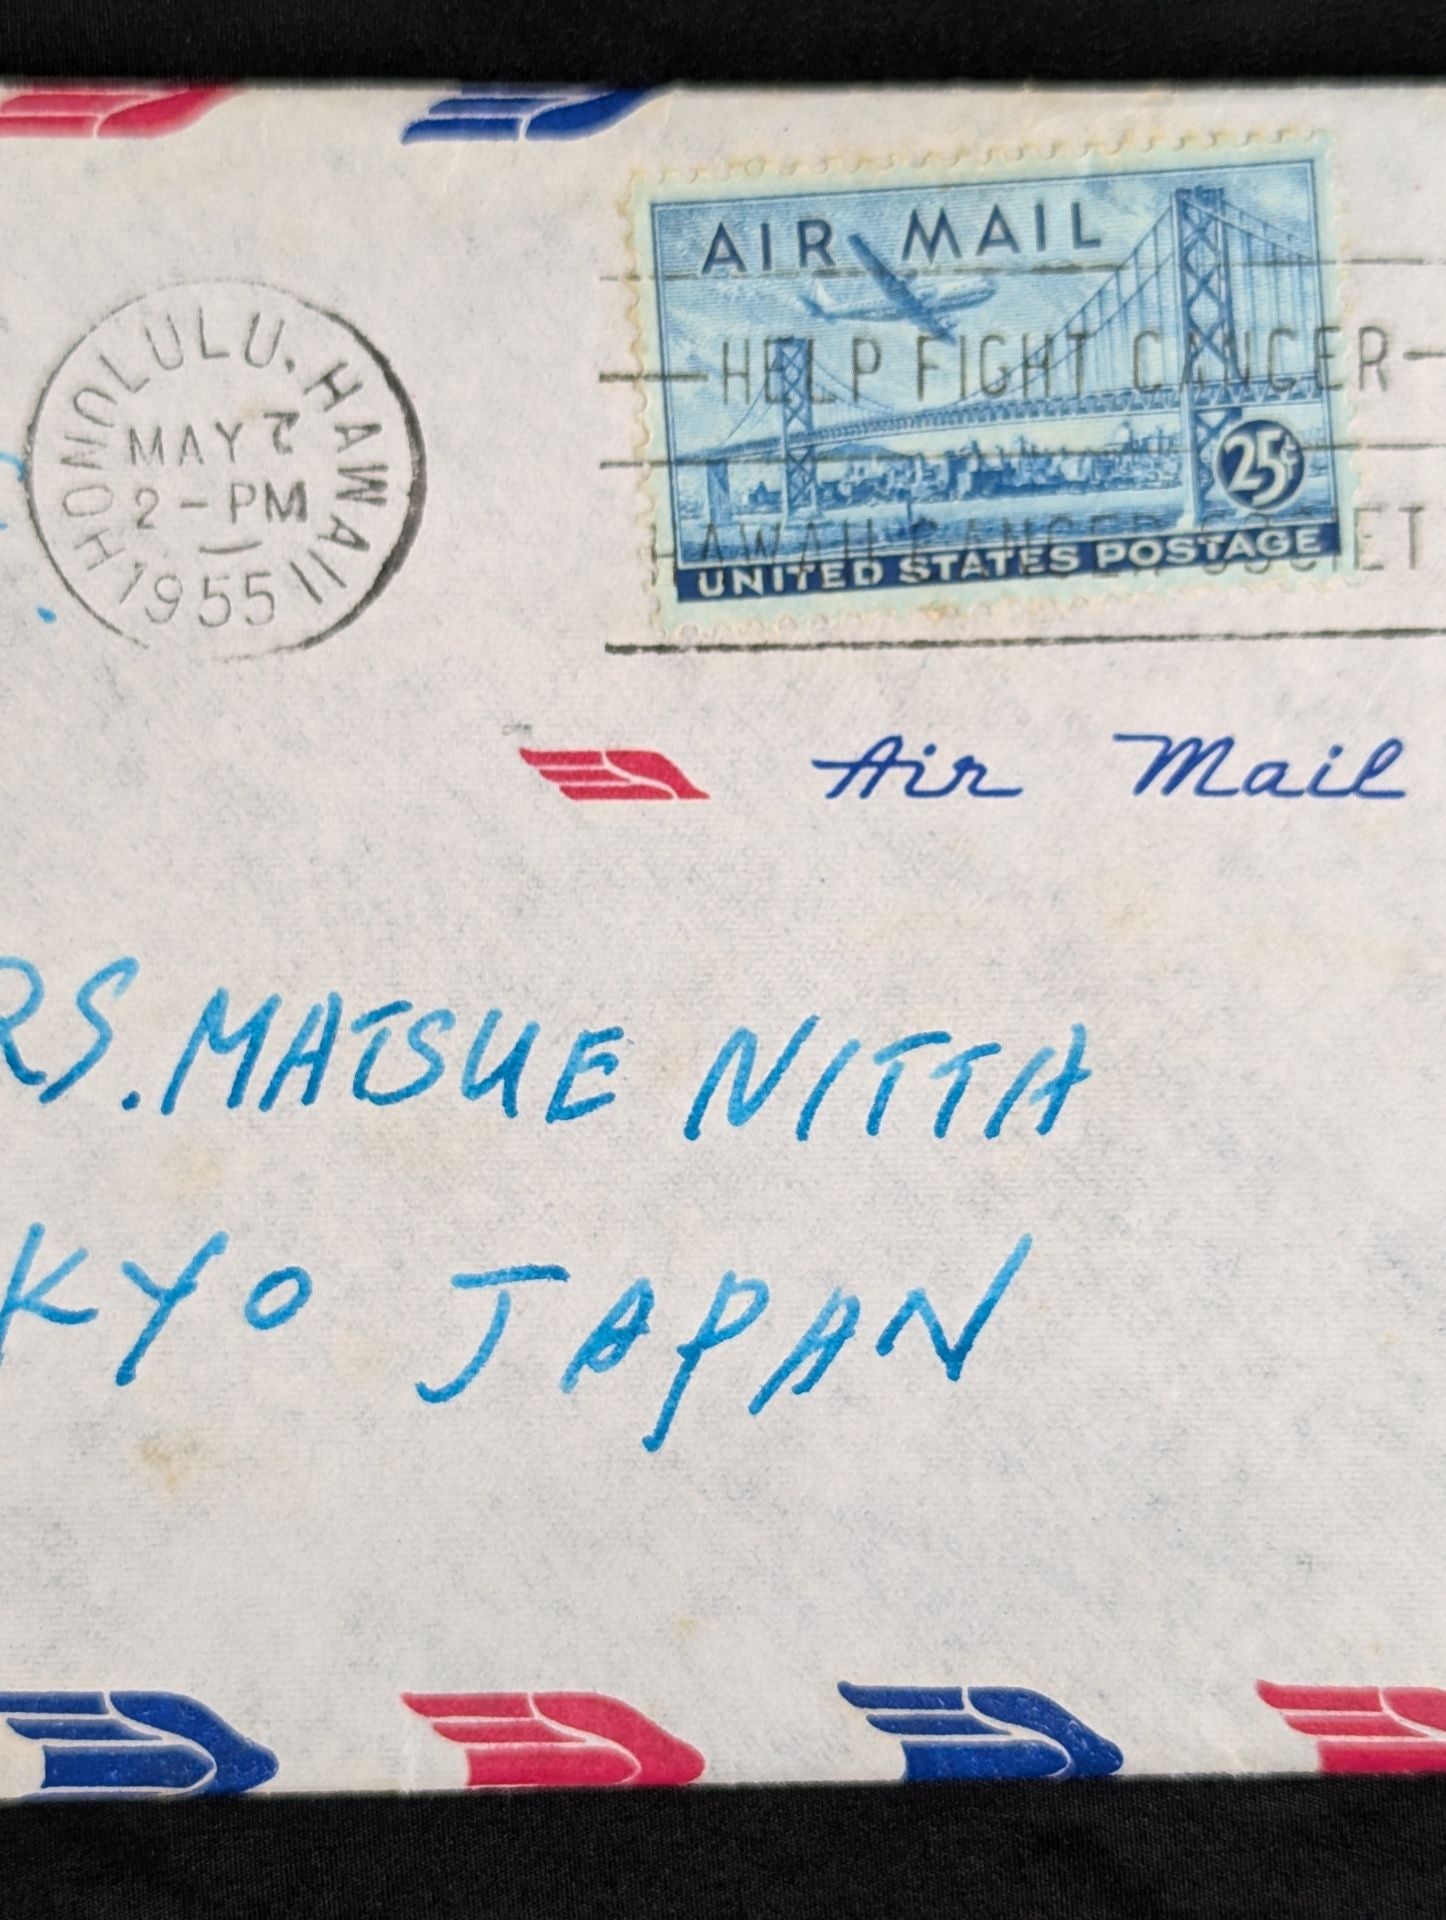 HONOLULU, HAWAII
MAY 7
2-PM
1955
AIR MAIL
HELP FIGHT CANCER
25¢
HAWAII CANCER SOCIET
UNITED STATES POSTAGE
Air Mail
RS. MATSUE NITTA
KYO JAPAN